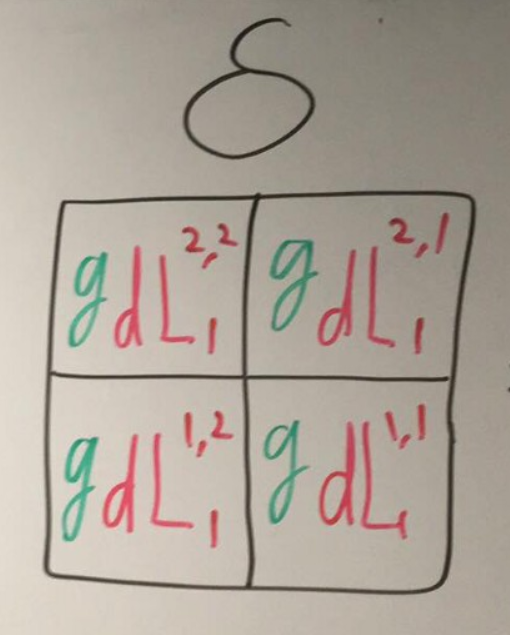 δ
gdL₁²,² gdL₁²,¹
gdL₁¹,² gdL₁¹,¹